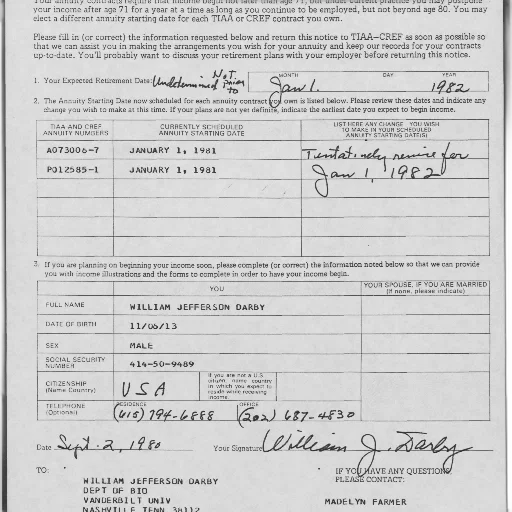 your income after age 71 for a year at a time as long as you continue to be employed, but not beyond age 80. You may
elect a different annuity starting date for each TIAA or CREF contract you own.
Please fill in (or correct) the information requested below and return this notice to TIAA-CREF as soon as possible so
that we can assist you in making the arrangements you wish for your annuity and keep our records for your contracts
up-to-date. You'll probably want to discuss your retirement plans with your employer before returning this notice.
1. Your Expected Retirement Date: Undetermined Not prior to
MONTH DAY YEAR
Jan 1. 1982
2. The Annuity Starting Date now scheduled for each annuity contract you own is listed below. Please review these dates and indicate any
change you wish to make at this time. If your plans are not yet definite, indicate the earliest date you expect to begin income.
TIAA AND CREF ANNUITY NUMBERS
CURRENTLY SCHEDULED ANNUITY STARTING DATE
LIST HERE ANY CHANGE YOU WISH TO MAKE IN YOUR SCHEDULED ANNUITY STARTING DATE(S)
A073006-7 JANUARY 1, 1981 Tentatively revise for
P012585-1 JANUARY 1, 1981 Jan 1, 1982
3. If you are planning on beginning your income soon, please complete (or correct) the information noted below so that we can provide
you with income illustrations and the forms to complete in order to have your income begin.
YOU
YOUR SPOUSE, IF YOU ARE MARRIED
(If none, please indicate)
FULL NAME WILLIAM JEFFERSON DARBY
DATE OF BIRTH 11/06/13
SEX MALE
SOCIAL SECURITY NUMBER 414-50-9489
CITIZENSHIP (Name Country) USA
If you are not a U.S. citizen name country in which you expect to reside while receiving income.
TELEPHONE (Optional)
RESIDENCE (615) 794-6888
OFFICE (202) 687-4830
Date Sept. 2, 1980 Your Signature William J. Darby
TO:
IF YOU HAVE ANY QUESTIONS
PLEASE CONTACT:
WILLIAM JEFFERSON DARBY
DEPT OF BIO
VANDERBILT UNIV
NASHVILLE TENN 38112
MADELYN FARMER